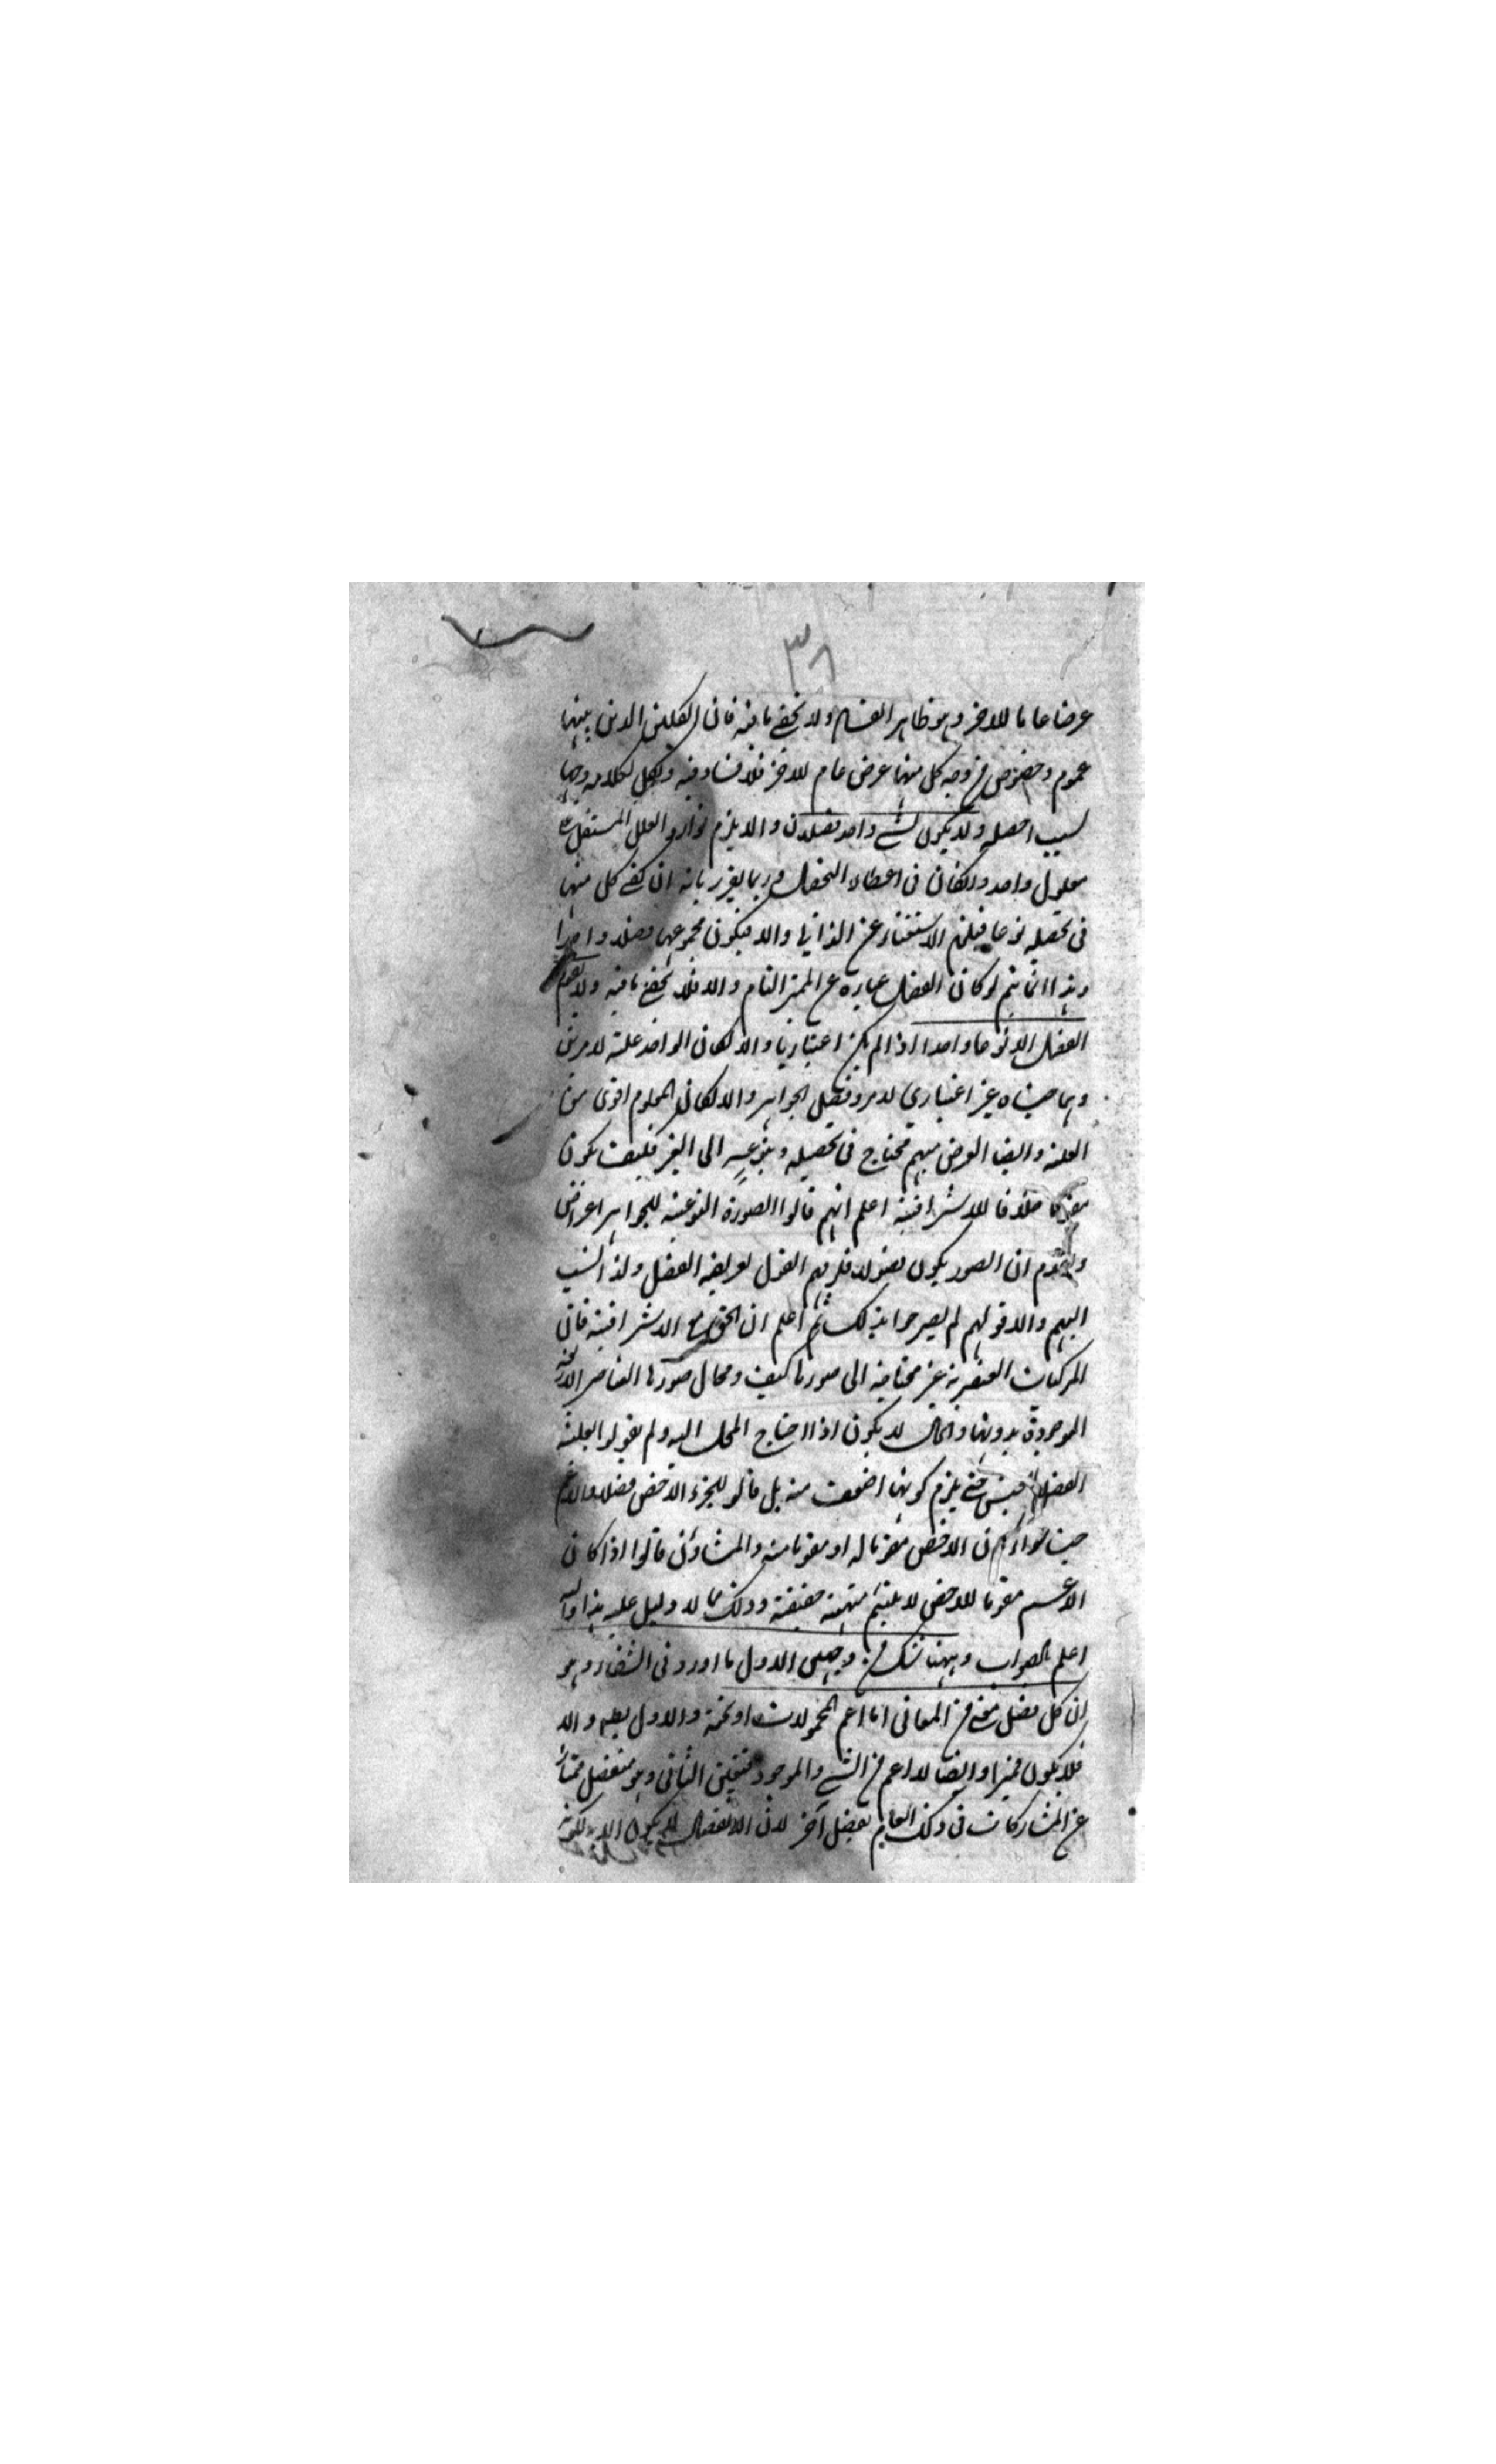 ٣٨
عرضا عاما للاخر وهو ظاهر الفساد ولا يخفى ما فيه فان الكليين الذين بينهما
عموم وخصوص من وجه كل منهما عرض عام للاخر فلا فساد فيه
ولا يكون لشيء واحد فصلان والا يلزم توارد العلل المستقلة
معلول واحد فى اعطاء التحصل وربما يقرر بانه ان كفى كل منهما
فى تحصيله نوعا فيلزم الاستغناء عن الذاتي والا فيكون مجموعهما فصلا واحدا
وهذا انما يتم لو كان الفصل عبارة عن المميز التام والا فلا يخفى ما فيه ولا يقوم
الفصل الا نوعا واحدا اذا لم يكن اعتباريا والا لكان الواحد علة لامرين
وهما غير اعتباري لامر وفصل الجواهر والا لكان المعلوم اقوى من
العلة وايضا العرض مبهم محتاج فى تحصيله وتنوعه الى الغير فكيف يكون
مقوما خلافا للاشراقية اعلم انهم قالوا الصورة النوعية للجواهر اعراض
ان الصور يكون فصولا فلزمهم القول بعرضية الفصل ولذا نسب
اليهم والا فهم لم يصرحوا بذلك ثم اعلم ان الحق مع الاشراقية فان
المركبات العنصرية غير محتاجة الى صورها كيف ومحال صورها العناصر الاربعة
الموجودة بدونها والحال لا يكون اذا احتاج المحل اليه ولم يقولوا بعلية
الفصل للجنس حتى يلزم كونها اضعف منه بل قالو للجزء الاخص فصلا والاعم
جنسا سواء كان الاخص مقوما له او مقوما منه والمشاؤن قالوا اذا كان
الاعم مقوما للاخص لا يلتئم منهما حقيقة وذلك مما لا دليل عليه هذا والله
اعلم بالصواب وههنا شك من وجهين الاول ما اورد فى الشفاء وهو
ان كل فصل معنى من المعانى اما اعم المحمولات او تحته والاول بط والا
فلا يكون مميزا وايضا لا اعم من الشيء والموجود فتعين الثانى وهو منفصل
عن المشاركات فى ذلك العام بفصل آخر لان الانفصال لا يكون الا